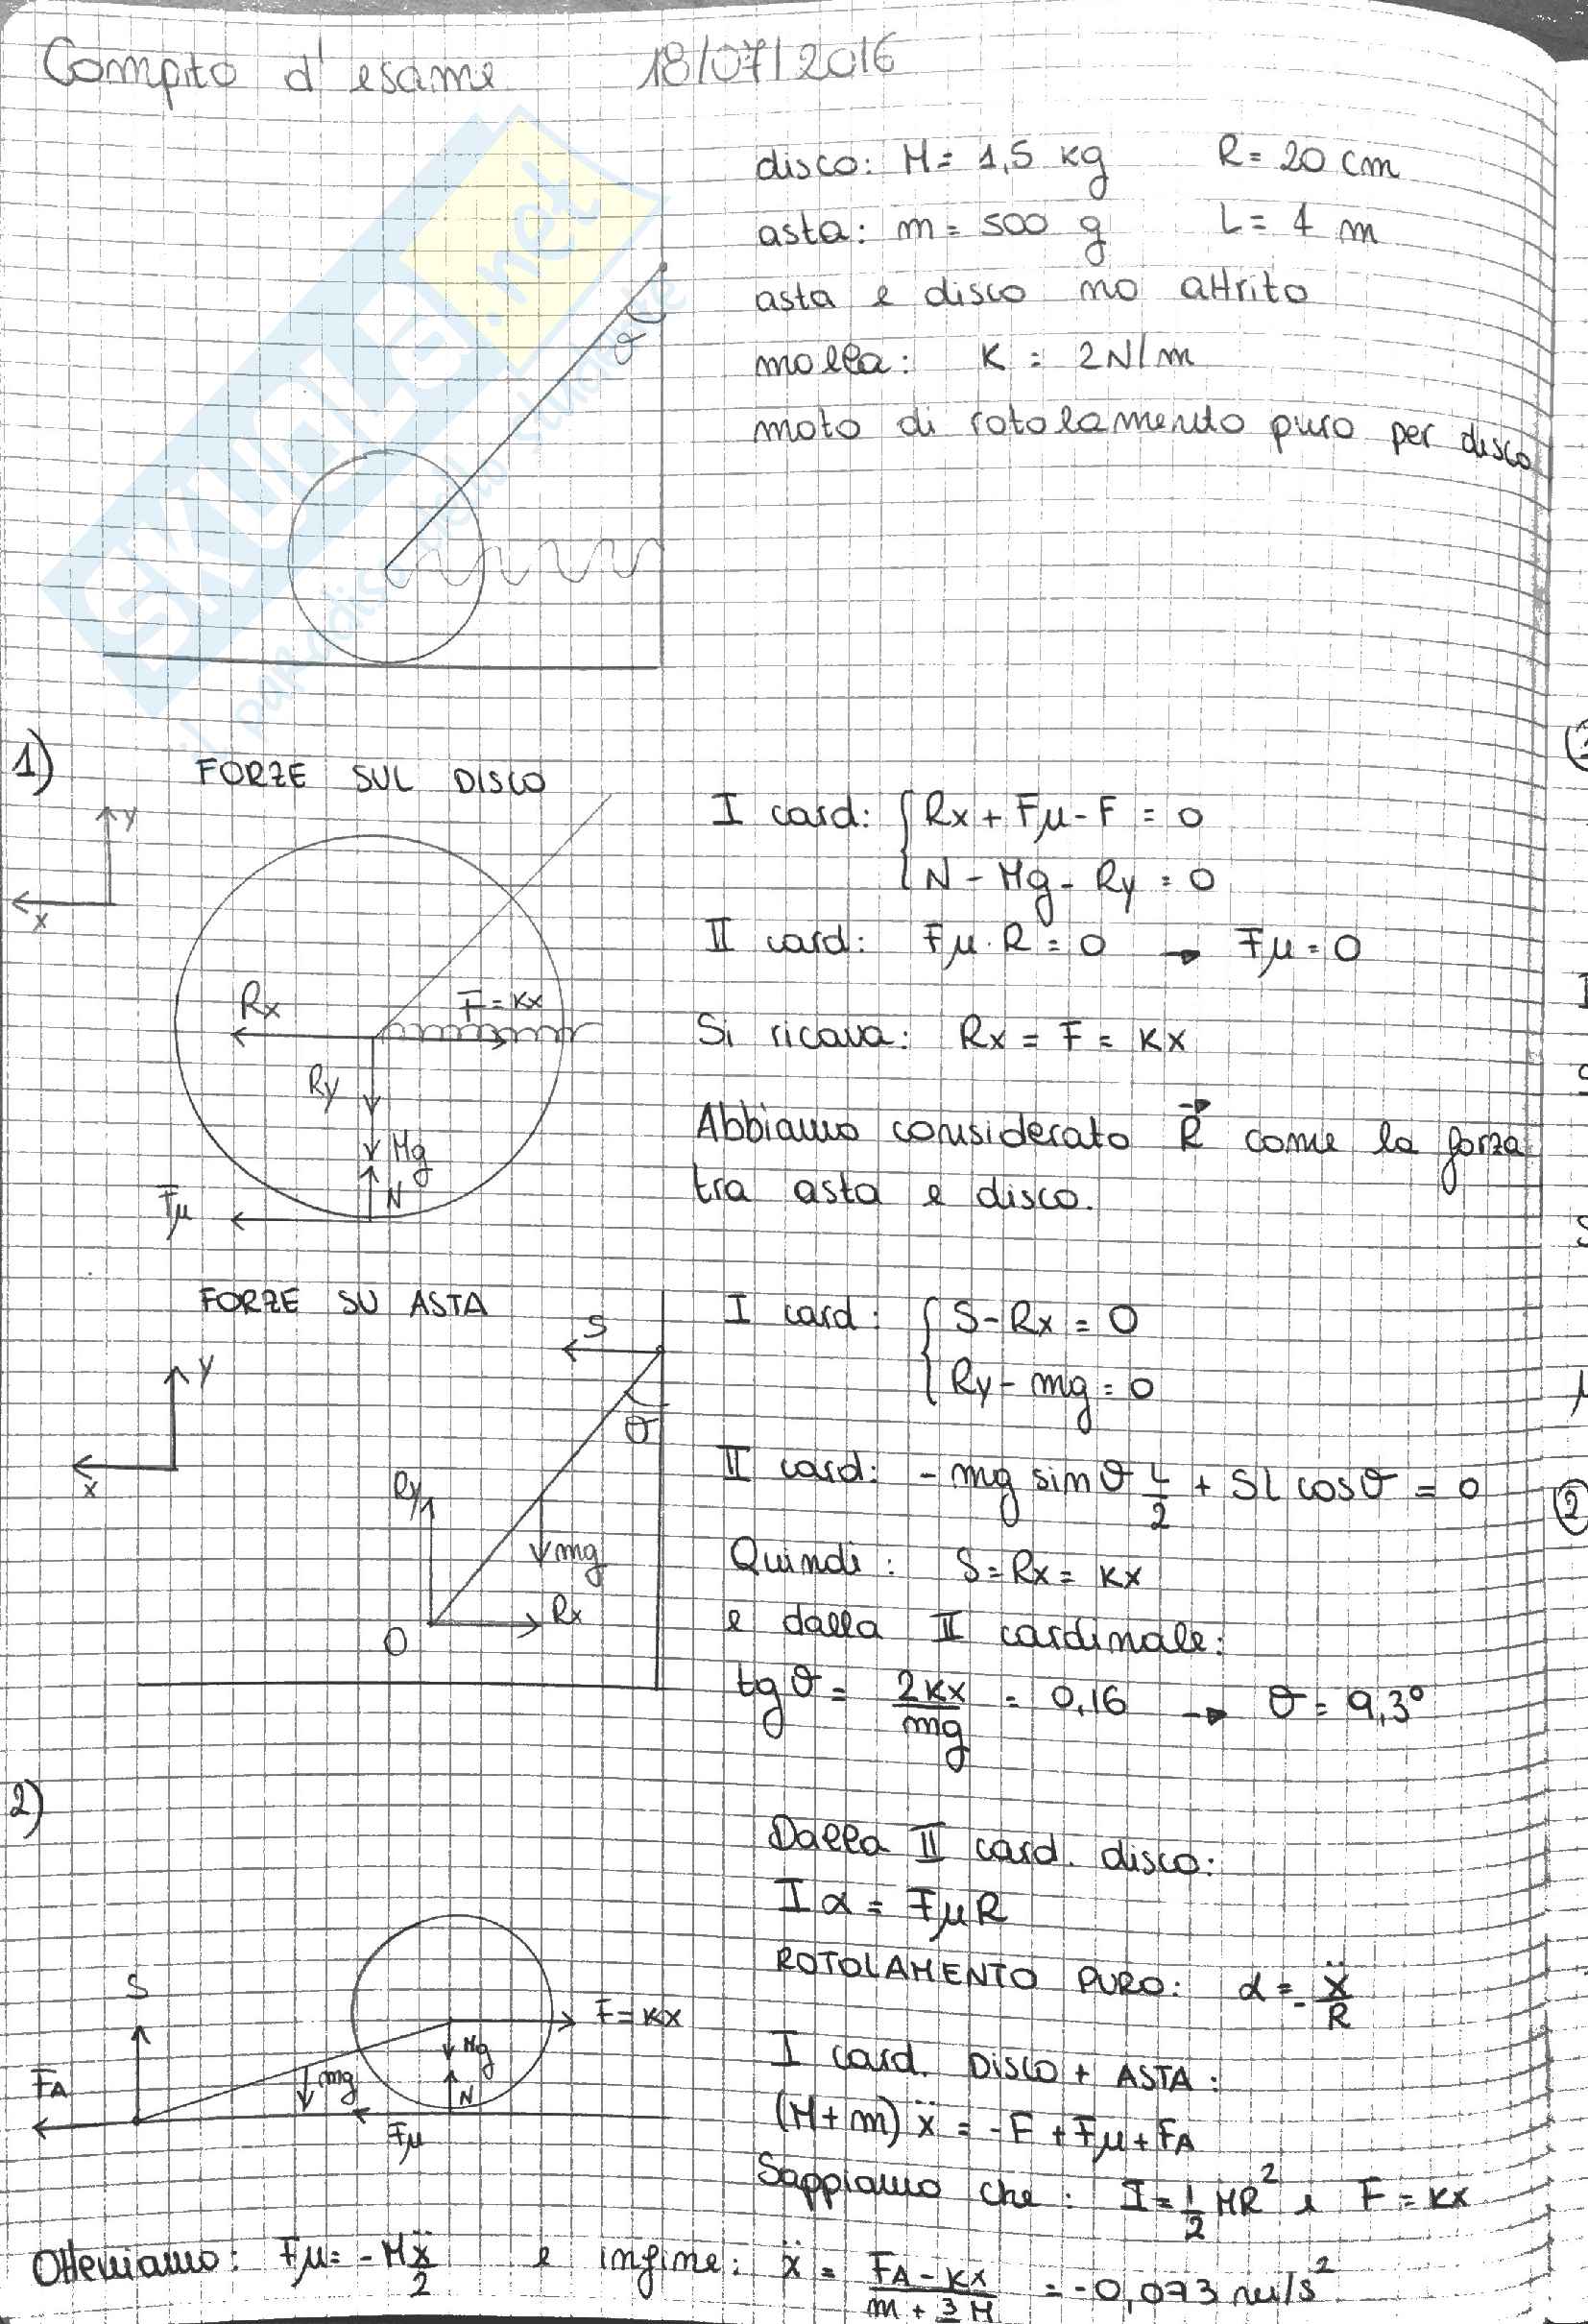 Compito d'esame 18/07/2016
disco: M = 1,5 kg R = 20 cm
asta: m = 500 g L = 1 m
asta e disco no attrito
molla: K = 2N/m
moto di rotolamento puro per disco
θ
SKUOLA.net
1)
FORZE SUL DISCO
y
x
Rx
F = Kx
Ry
Mg
N
Fμ
I card: { Rx + Fμ - F = 0
N - Mg - Ry = 0
II card: Fμ · R = 0 → Fμ = 0
Si ricava: Rx = F = Kx
Abbiamo considerato R⃗ come la forza
tra asta e disco.
FORZE SU ASTA
S
y
x
θ
Ry
mg
Rx
O
I card: { S - Rx = 0
Ry - mg = 0
II card: - mg sinθ L/2 + SL cosθ = 0
Quindi: S = Rx = Kx
e dalla II cardinale:
tgθ = 2Kx/mg = 0,16 → θ = 9,3°
2)
S
FA
mg
Mg
N
F = Kx
Fμ
Dalla II card. disco:
Iα = FμR
ROTOLAMENTO PURO: α = - ẍ/R
I card. DISCO + ASTA:
(M+m) ẍ = -F + Fμ + FA
Sappiamo che: I = 1/2 MR² e F = Kx
Otteniamo: Fμ = - Mẍ/2 e infine: ẍ = (FA - Kx)/(m + 3/2 M) = -0,073 m/s²
②